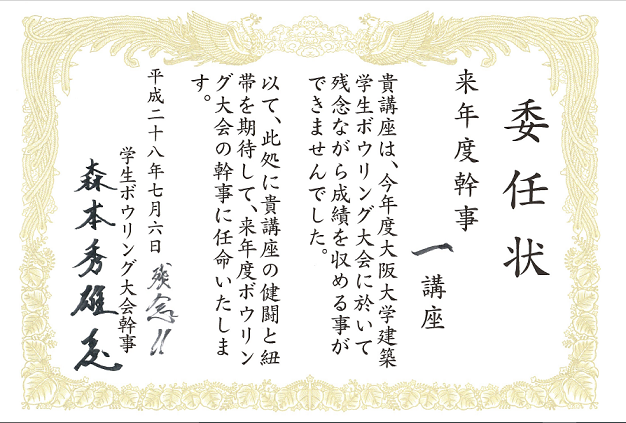 委任状
来年度幹事
一講座
貴講座は、今年度大阪大学建築
学生ボウリング大会に於いて
残念ながら成績を収める事が
できませんでした。
以て、此処に貴講座の健闘と紐
帯を期待して、来年度ボウリン
グ大会の幹事に任命いたしま
す。
平成二十八年七月六日
残念!!
学生ボウリング大会幹事
森本秀雄